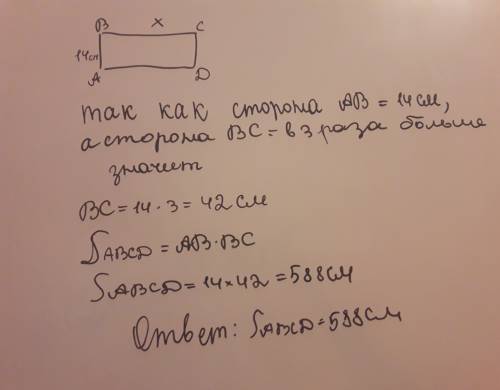 B x C
14см
A D
так как сторона AB = 14 см,
а сторона BC = в 3 раза больше
значит
BC = 14 · 3 = 42 см
SABCD = AB · BC
SABCD = 14 × 42 = 588см
Ответ: SABCD = 588см